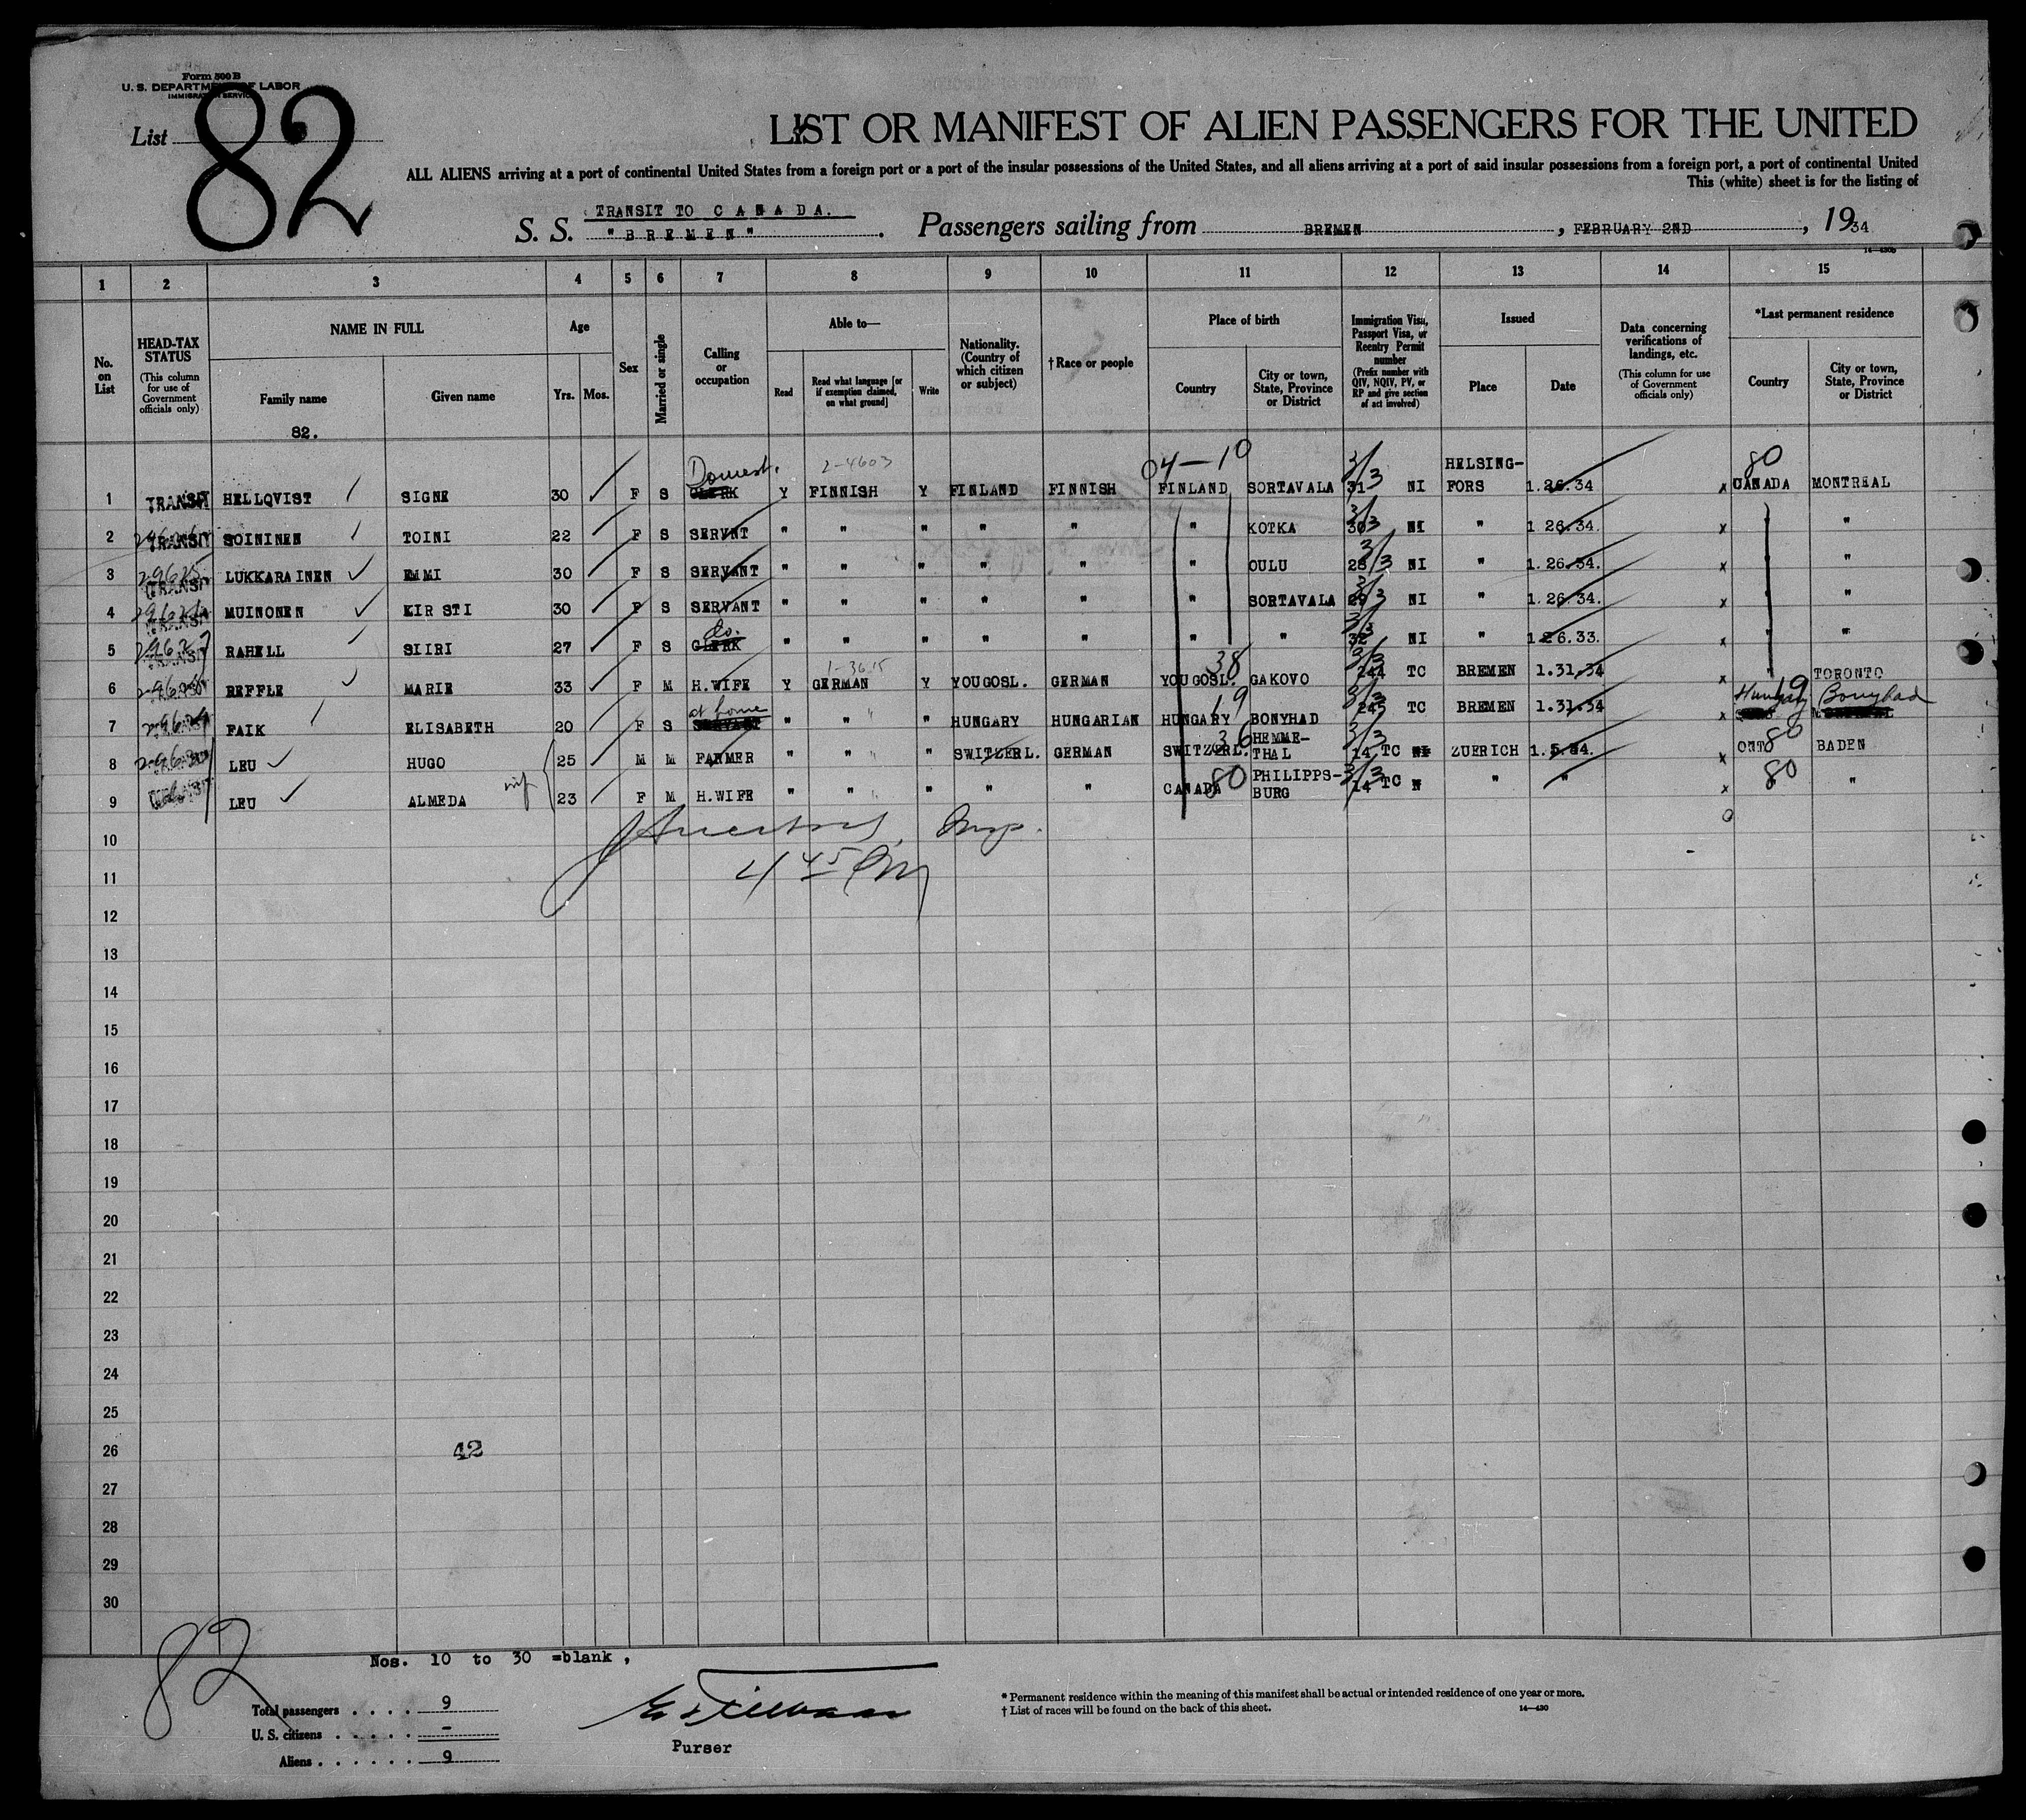 Form 500 B
U. S. DEPARTMENT OF LABOR
IMMIGRATION SERVICE
List 82
LIST OR MANIFEST OF ALIEN PASSENGERS FOR THE UNITED
ALL ALIENS arriving at a port of continental United States from a foreign port or a port of the insular possessions of the United States, and all aliens arriving at a port of said insular possessions from a foreign port, a port of continental United
This (white) sheet is for the listing of
TRANSIT TO CANADA.
S. S. "BREMEN". Passengers sailing from BREMEN, FEBRUARY 2ND, 1934
14—430b
1 2 3 4 5 6 7 8 9 10 11 12 13 14 15
No. on List
HEAD-TAX STATUS
(This column for use of Government officials only)
NAME IN FULL
Family name
Given name
82.
Age
Yrs. Mos.
Sex
Married or single
Calling or occupation
Able to—
Read
Read what language [or if exemption claimed, on what ground]
Write
Nationality. (Country of which citizen or subject)
†Race or people
Place of birth
Country
City or town, State, Province or District
Immigration Visa, Passport Visa, or Reentry Permit number
(Prefix number with QIV, NQIV, PV, or RP and give section of act involved)
Issued
Place
Date
Data concerning verifications of landings, etc.
(This column for use of Government officials only)
*Last permanent residence
Country
City or town, State, Province or District
Domest. 2-4603 04-10 3/3 HELSING- 80
1 TRANSIT HELLQVIST SIGNE 30 F S CLERK Y FINNISH Y FINLAND FINNISH FINLAND SORTAVALA 31 NI FORS 1.26.34 x CANADA MONTREAL
2 TRANSIT SOININEN TOINI 22 F S SERVNT " " " " " " KOTKA 30 NI " 1 26.34. x "
3 29625 TRANSIT LUKKARAINEN EMMI 30 F S SERVANT " " " " " " OULU 28 NI " 1.26.34. x "
4 29626 TRANSIT MUINONEN KIRSTI 30 F S SERVANT " " " " " " SORTAVALA 29 NI " 1.26.34. x "
do.
5 29627 TRANSIT RAHELL SIIRI 27 F S CLERK " " " " " " " 32 NI " 1.26.33. x " "
1-3615 38
6 29628 REFFLE MARIE 33 F M H.WIFE Y GERMAN Y YOUGOSL. GERMAN YOUGOSL. GAKOVO 244 TC BREMEN 1.31.34 x TORONTO
at home 19 Hungary 19 Bonyhad
7 29629 FAIK ELISABETH 20 F S SERVANT " " " HUNGARY HUNGARIAN HUNGARY BONYHAD 245 TC BREMEN 1.31.34 x
36 HEMME- 80
8 29630 LEU HUGO 25 M M FARMER " " " SWITZERL. GERMAN SWITZERL. THAL 14 TC NI ZUERICH 1.5.34. x ONT BADEN
wif 80 PHILIPPS- 80
9 TRANSIT LEU ALMEDA 23 F M H.WIFE " " " " " CANADA BURG 14 TC N " " x "
10
4 45 PM
11
12
13
14
15
16
17
18
19
20
21
22
23
24
25
26 42
27
28
29
30
82
Nos. 10 to 30 =blank,
Total passengers . . . . 9
U. S. citizens . . . . . -
Aliens . . . . . . 9
Purser
* Permanent residence within the meaning of this manifest shall be actual or intended residence of one year or more.
† List of races will be found on the back of this sheet.
14—430